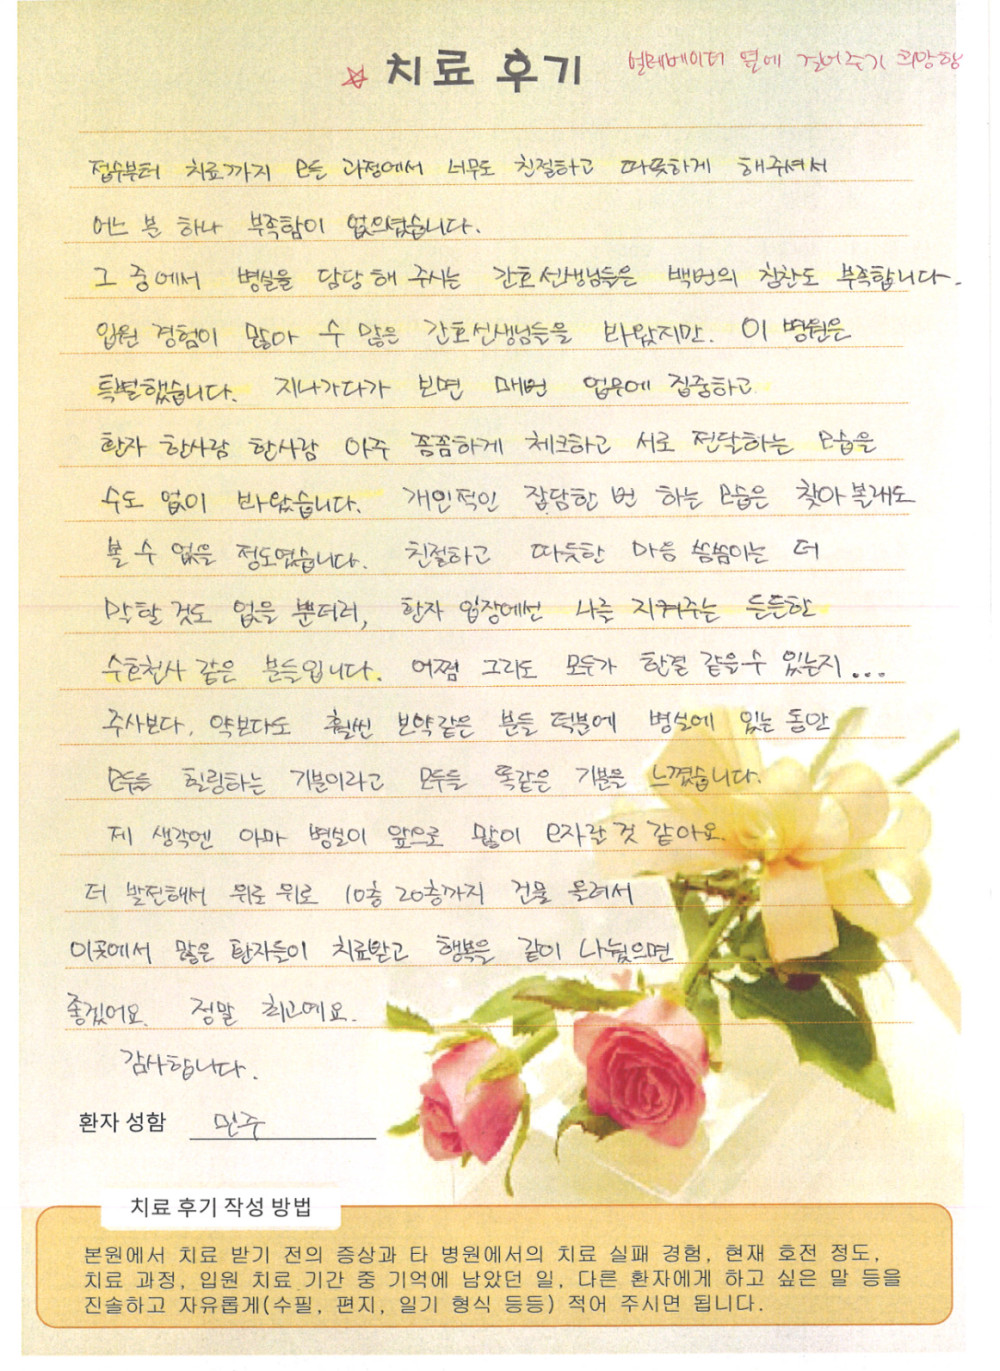 ☆ 치료 후기
엘레베이터 옆에 걸어주기 희망함
접수부터 치료까지 모든 과정에서 너무도 친절하고 따뜻하게 해주셔서
어느 분 하나 부족함이 없으셨습니다.
그 중에서 병실을 담당해 주시는 간호선생님들은 백번의 칭찬도 부족합니다.
입원 경험이 많아 수 많은 간호선생님들을 봐왔지만. 이 병원은
특별했습니다. 지나가다가 보면 매번 업무에 집중하고
환자 한사람 한사람 아주 꼼꼼하게 체크하고 서로 전달하는 모습을
수도 없이 봐왔습니다. 개인적인 잡담한 번 하는 모습은 찾아볼래도
볼 수 없을 정도였습니다. 친절하고 따듯한 마음 씀씀이는 더
말할 것도 없을 뿐더러, 환자 입장에선 나를 지켜주는 든든한
수호천사 같은 분들입니다. 어쩜 그리도 모두가 한결 같을수 있는지...
주사보다, 약보다도 훨씬 보약같은 분들 덕분에 병실에 있는 동안
모두들 힐링하는 기분이라고 모두들 똑같은 기분을 느꼈습니다.
제 생각엔 아마 병실이 앞으로 많이 모자랄 것 같아요.
더 발전해서 위로 위로 10층 20층까지 건물 올려서
이곳에서 많은 환자들이 치료받고 행복을 같이 나눴으면
좋겠어요. 정말 최고예요.
감사합니다.
환자 성함 민주
치료 후기 작성 방법
본원에서 치료 받기 전의 증상과 타 병원에서의 치료 실패 경험, 현재 호전 정도,
치료 과정, 입원 치료 기간 중 기억에 남았던 일, 다른 환자에게 하고 싶은 말 등을
진솔하고 자유롭게(수필, 편지, 일기 형식 등등) 적어 주시면 됩니다.